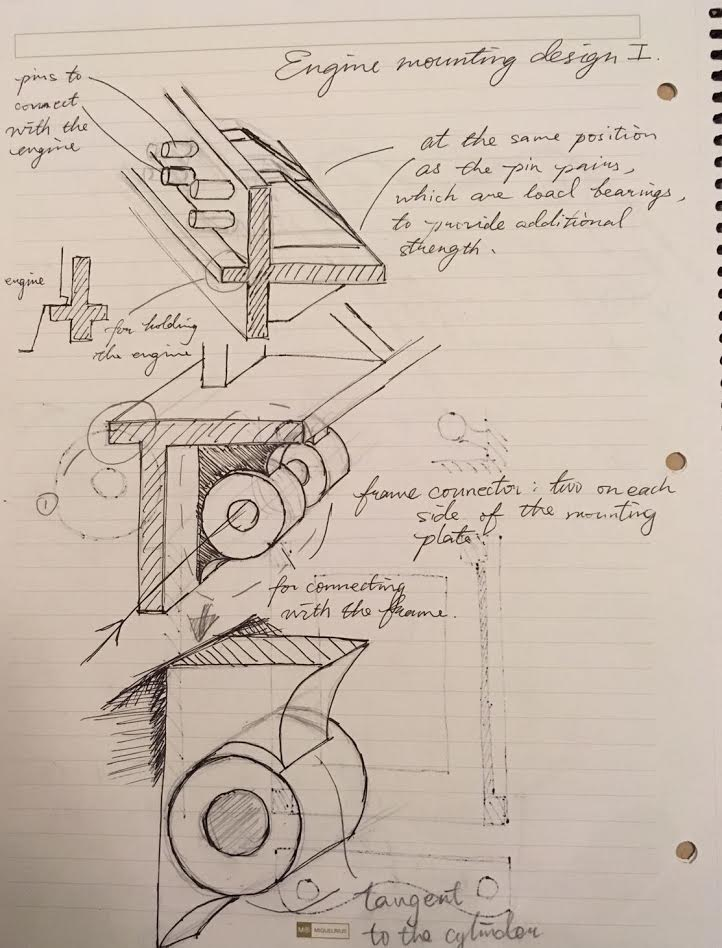 Engine mounting design I.
pins to
connect
with the
engine
at the same position
as the pin pairs,
which are load bearings,
to provide additional
strength.
engine
for holding
the engine
1
frame connector: two on each
side of the mounting
plate.
for connecting
with the frame.
tangent
to the cylinder
MIQUELRIUS